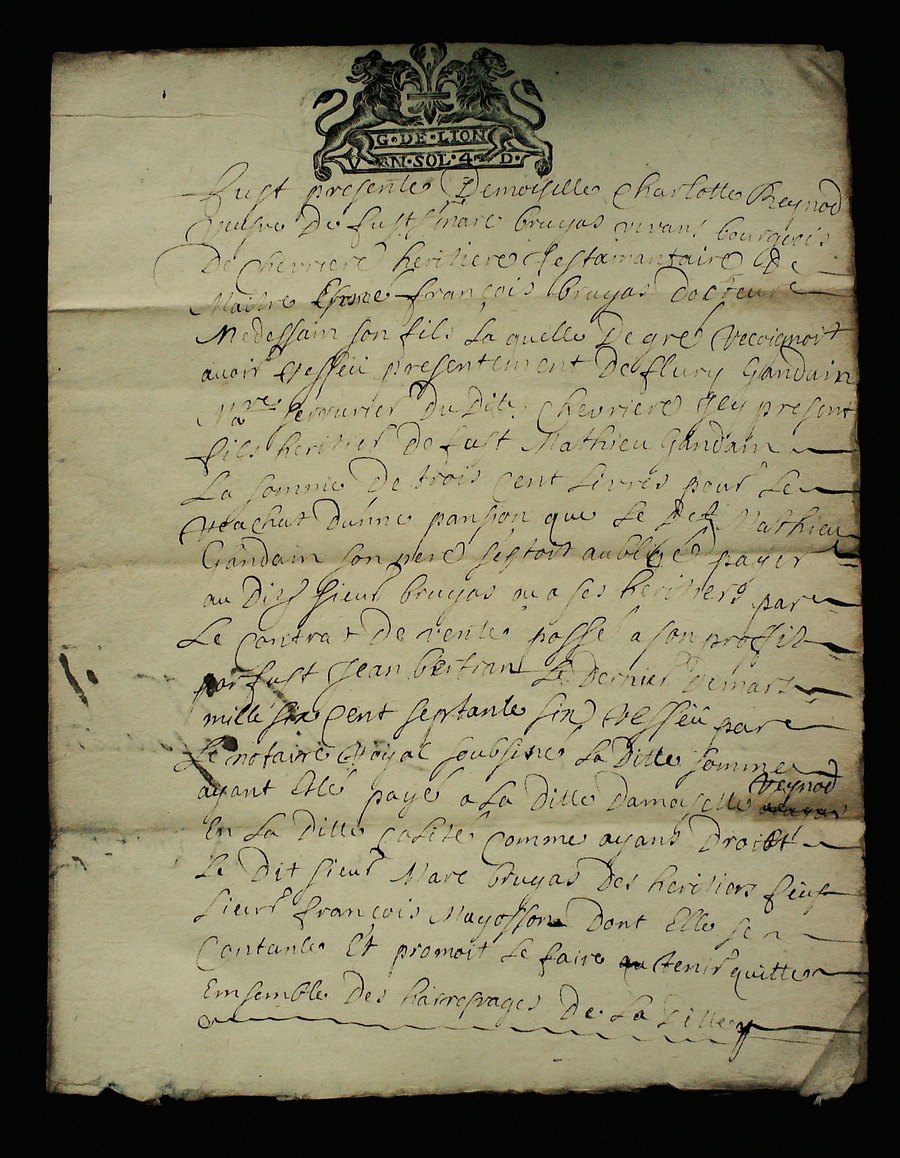 G·DE·LION
VN·SOL·4·D·
fust presente Demoiselle Charlotte Reynod
veufve De fust sr marc bruyas vivant bourgeois
De chevriere heritiere Testamantaire De
Maitre françois bruyas docteur
Medessain son fils La quelle De gre recoignoit
avoir resseü presentement De flury Gandain
Mre serrurier Du Dit chevriere Icy present
fils heritier De fust Mathieu Gandain
La somme De trois cent Livres pour Le
reachat dunne panpion que Le Dit Mathieu
Gandain son pere sestoit aubligé payer
au Dit sieur bruyas ou a ses heritiers par
Le contrat De vente passé a son proffit
par fust Jean bertran Le Dernier Demars
mille six cent septante six resseü par
Le notaire Royal soubsiné La Ditte somme
ayant Esté payé a La Ditte Damoyselle Reynod
En La Ditte calité comme ayant Droit
Le Dit sieur Marc bruyas Des heritiers feus
sieur françois Mayosson Dont Elle se
Contante Et promoit Le faire tenir quitte
Ensemble Des harrerages De La Ditte